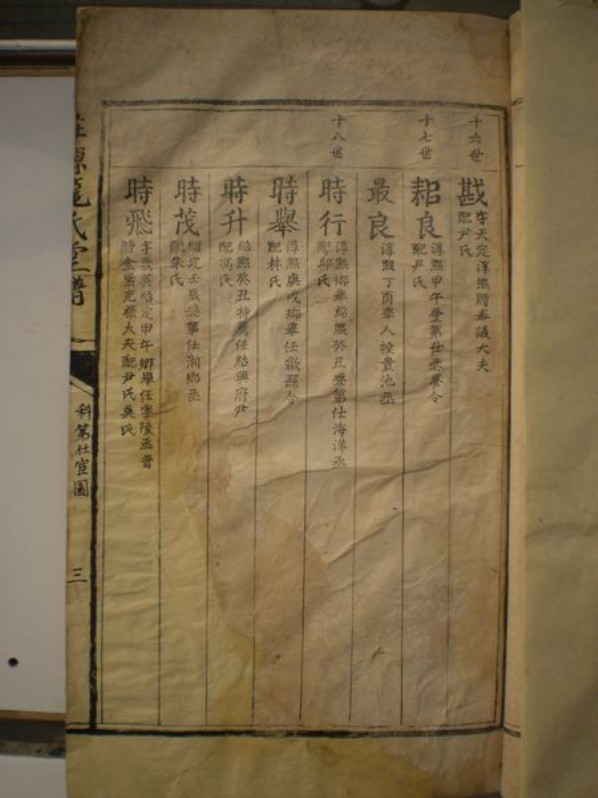 十六世
戡 字天定淳熙贈奉議大夫
配尹氏
十七世
耜良 淳熙甲午登第仕崇華令
配尹氏
最良 淳熙丁酉舉人授貴池丞
十八世
時行 淳熙鄉舉紹熙癸丑登第仕海洋丞
配邱氏
時舉 淳熙庚戌鄉舉任歙縣令
配林氏
時升 紹熙癸丑特薦任紹興府尹
配馮氏
時茂 紹定壬辰登第仕湘鄉丞
配朱氏
時飛 字 英紹定甲午鄉舉任寧陵丞晋
贈金紫光祿大夫配尹氏 氏
源 氏宗譜
科第仕宦圖
三